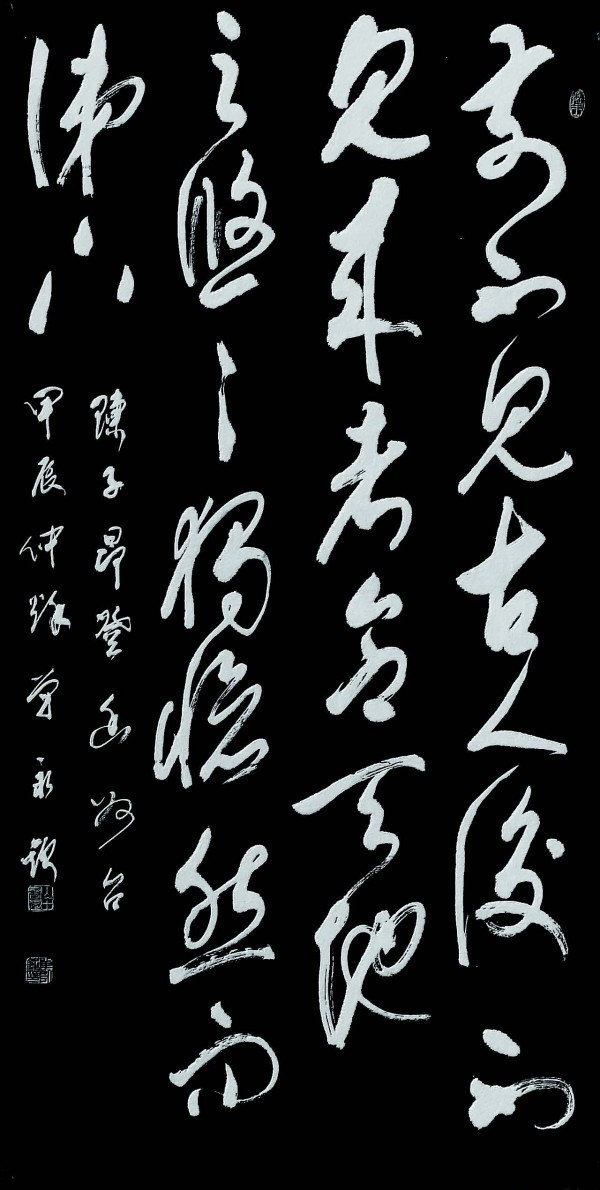 前不見古人後不
見来者念天地
之悠々獨愴然而
涕下
陳子昂登幽州台
甲辰仲秋曾永